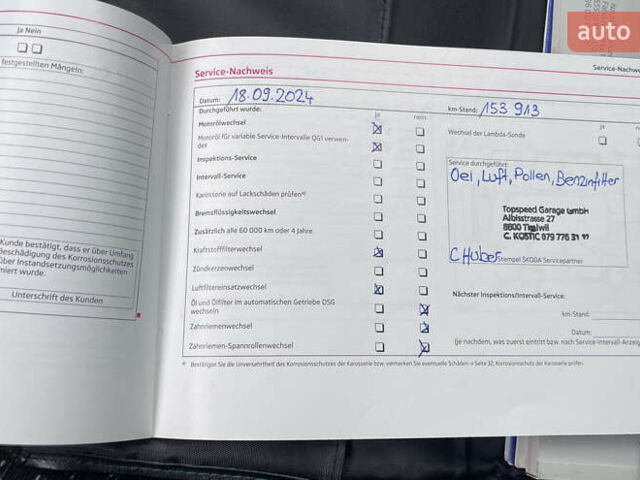 auto
Ja Nein
festgestellten Mängeln:
Kunde bestätigt, dass er über Umfang
Beschädigung des Korrosionsschutzes
über Instandsetzungsmöglichkeiten
miert wurde.
Unterschrift des Kunden
Service-Nachweis
Service-Nachwe
Datum: 18.09.2024
km-Stand: 153 913
Durchgeführt wurde:
ja
nein
Motorölwechsel
Motoröl für variable Service-Intervalle QG1 verwen-
det
Inspektions-Service
Intervall-Service
Karosserie auf Lackschäden prüfen
Bremsflüssigkeitswechsel
Zusätzlich alle 60 000 km oder 4 Jahre
Kraftstofffilterwechsel
Zündkerzenwechsel
Luftfiltereinsatzwechsel
Öl und Ölfilter im automatischen Getriebe DSG
wechseln
Zahnriemenwechsel
Zahnriemen-Spannrollenwechsel
ja
Wechsel der Lambda-Sonde
Service durchgeführt:
Oel, Luft, Pollen, Benzinfilter
Topspeed Garage GmbH
Albisstrasse 27
8800 Thalwil
C. KOSTIC 079 776 31
C Huber
Stempel ŠKODA Servicepartner
Nächster Inspektions/Intervall-Service:
km-Stand:
Datum:
(je nachdem, was zuerst eintritt bzw. nach Service-Intervall-Anzeig
Bestätigen Sie die Unversehrtheit des Korrosionsschutzes der Karosserie bzw. vermerken Sie eventuelle Schäden → Seite 32, Korrosionsschutz der Karosserie prüfen.